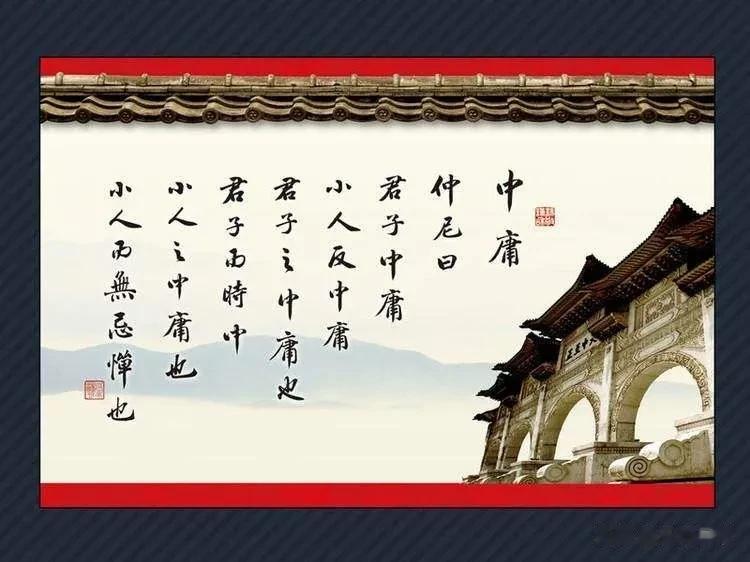 中庸
仲尼曰
君子中庸
小人反中庸
君子之中庸也
君子而時中
小人之中庸也
小人而無忌憚也